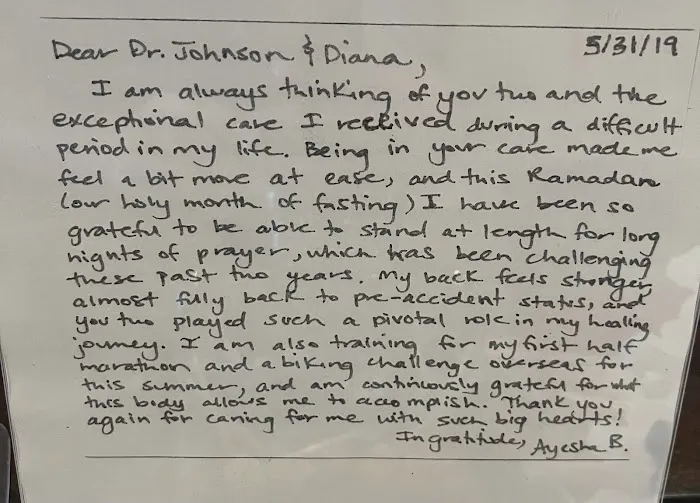 5/31/19
Dear Dr. Johnson & Diana,
I am always thinking of you two and the
exceptional care I received during a difficult
period in my life. Being in your care made me
feel a bit more at ease, and this Ramadan
(our holy month of fasting) I have been so
grateful to be able to stand at length for long
nights of prayer, which has been challenging
these past two years. My back feels stronger,
almost fully back to pre-accident status, and
you two played such a pivotal role in my healing
journey. I am also training for my first half
marathon and a biking challenge overseas for
this summer, and am continuously grateful for what
this body allows me to accomplish. Thank you
again for caring for me with such big hearts!
In gratitude, Ayesha B.